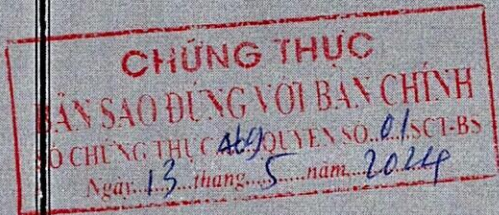 CHỨNG THỰC
BẢN SAO ĐÚNG VỚI BẢN CHÍNH
SỐ CHỨNG THỰC QUYỂN SỐ..01.SCT-BS
Ngày..13..tháng..5..năm..2024